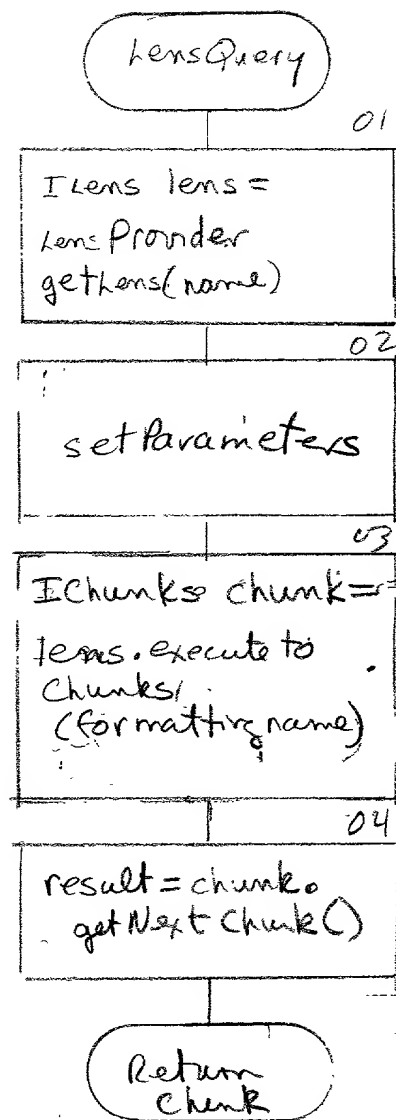 LensQuery
01
ILens lens =
LensProvider
getLens(name)
02
setParameters
03
IChunks chunk =
lens.execute to
Chunks
(formatting name)
04
result = chunk.
getNextChunk()
Return
Chunk